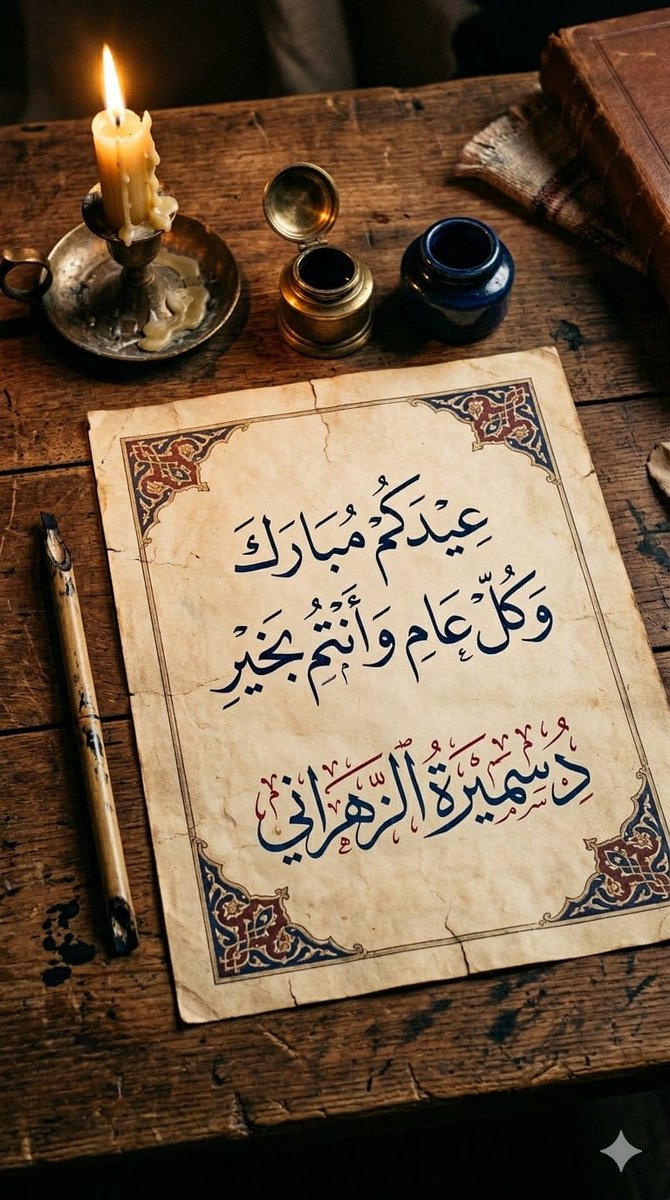 عِيْدَكُمْ مُبَارَكَ
وَكُلّ عَامِ وَأَنْتُمِ بَخَيْرِ
دُسَمِيْرَةُ الزَّهَراني